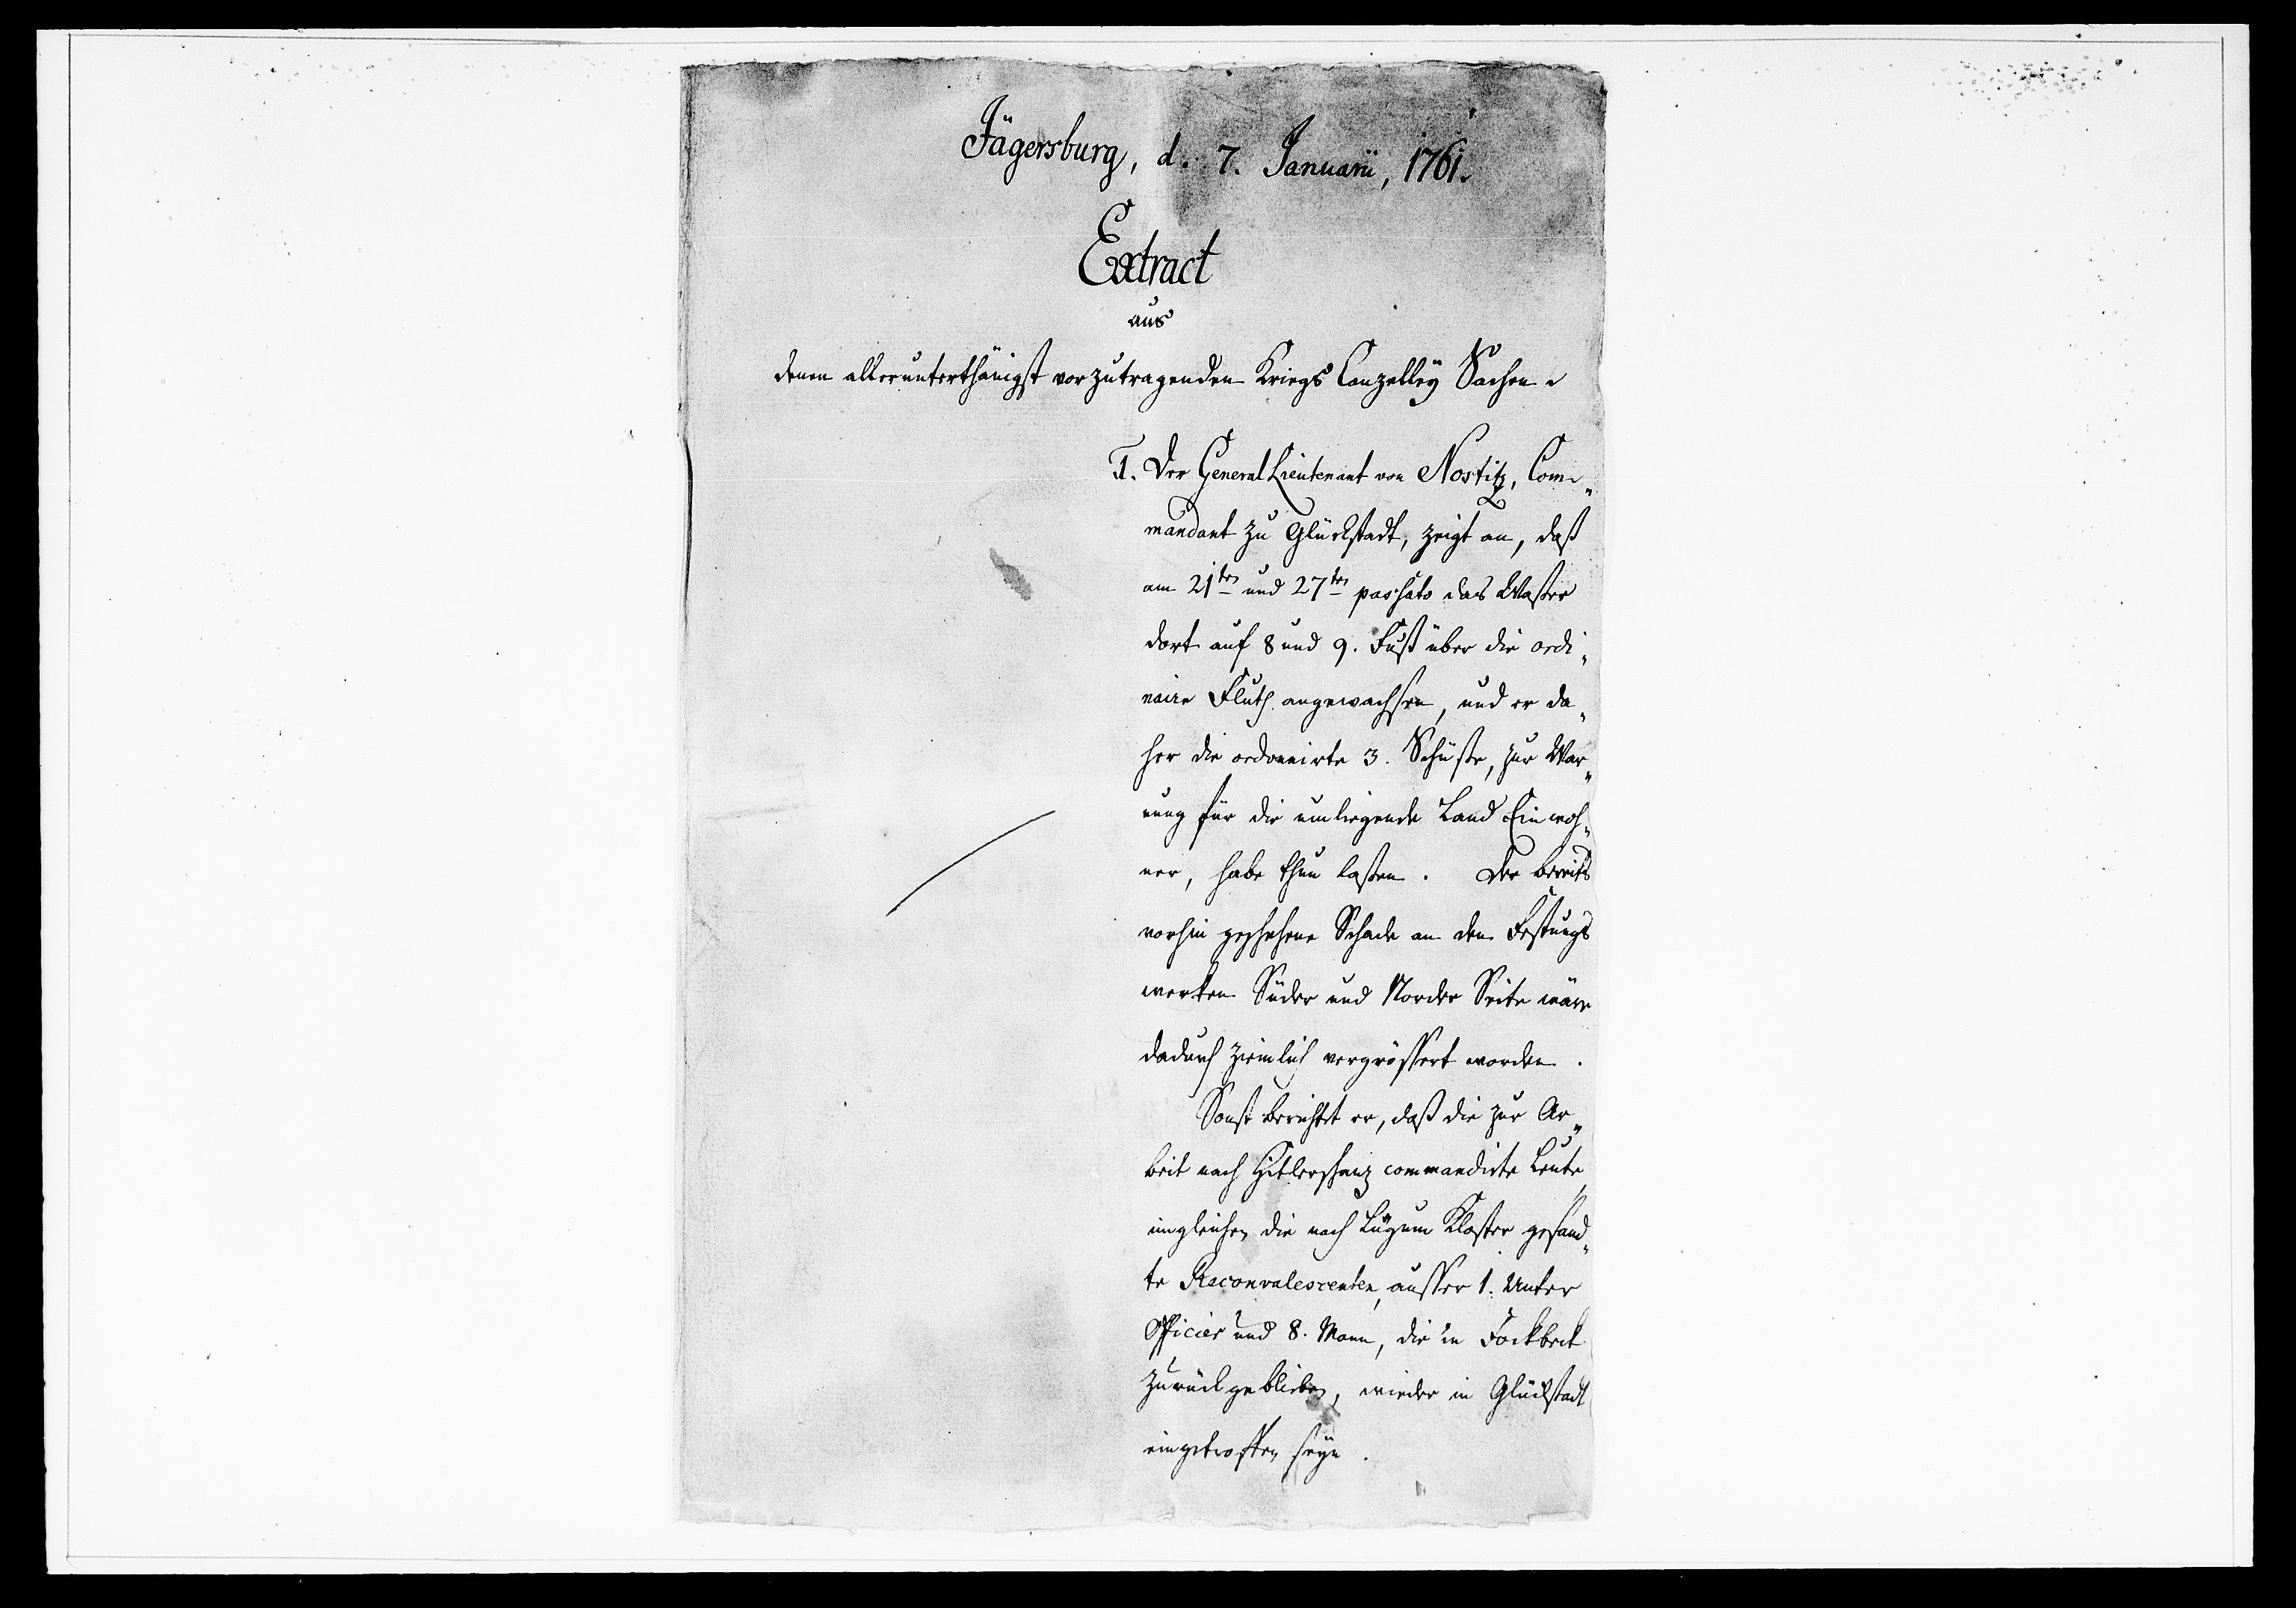 Jägersburg, d. 7. Januarii, 1761.
Extract
aus
denen allerunterthänigst vorzutragenden Kriegs Canzelley Sachen
1. Der General Lieutenant von Nostitz, Com„
mandant zu Glückstadt, zeigt an, daß
am 21ten und 27ten passato das Waßer
dort auf 8 und 9. Fuß über die ordi„
naire Fluth angewachsen, und er da„
her die ordonnirte 3. Schüße, zur War„
nung für die umliegende Land Einwoh„
ner, habe thun laßen. Der bereits
vorhin geschehene Schade an den Festungs
werken Süder und Norder Seite wäre
dadurch ziemlich vergrössert worden.
Sonst berichtet er, daß die zur Ar„
beit nach Hitlerschanz commandirte Leute,
imgleichen die nach Lügum Kloster gesand„
te Reconvalescenten, ausser 1. Unter
Officier und 8. Mann, die in Fockbeck
zurückgeblieben, wieder in Glückstadt
eingetroffen seyn.